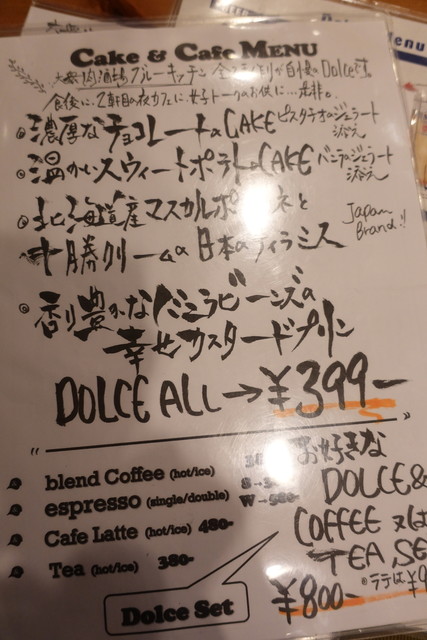 Cake & Cafe MENU
大衆肉酒場ブルーキッチン 全て手作りが自慢のDolce達。
食後に、2軒目の夜カフェに、女子トークのお供に…是非。
濃厚なチョコレートのCAKE ピスタチオのジェラート
添え
温かいスウィートポテトのCAKE バニラのジェラート
添え
北海道産マスカルポーネと
十勝クリームの日本のティラミス Japan
Brand!!
香り豊かなバニラビーンズの
幸せカスタードプリン
DOLCE ALL→¥399-
blend Coffee (hot/ice)
espresso (single/double)
Cafe Latte (hot/ice) 480-
Tea (hot/ice) 380-
Dolce Set
お好きな
DOLCE&
COFFEE 又は
TEA SE
¥800-
ラテは¥9